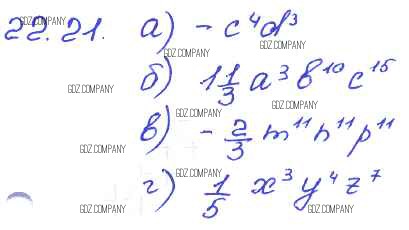 22.21. а) - c⁴d³
GDZ.COMPANY
GDZ.COMPANY GDZ.COMPANY
б) 1 1/3 a³ b¹⁰ c¹⁵
GDZ.COMPANY GDZ.COMPANY
в) - 2/3 m¹¹ n¹¹ p¹¹
GDZ.COMPANY
GDZ.COMPANY
г) 1/5 x³ y⁴ z⁷
GDZ.COMPANY
GDZ.COMPANY GDZ.COMPANY